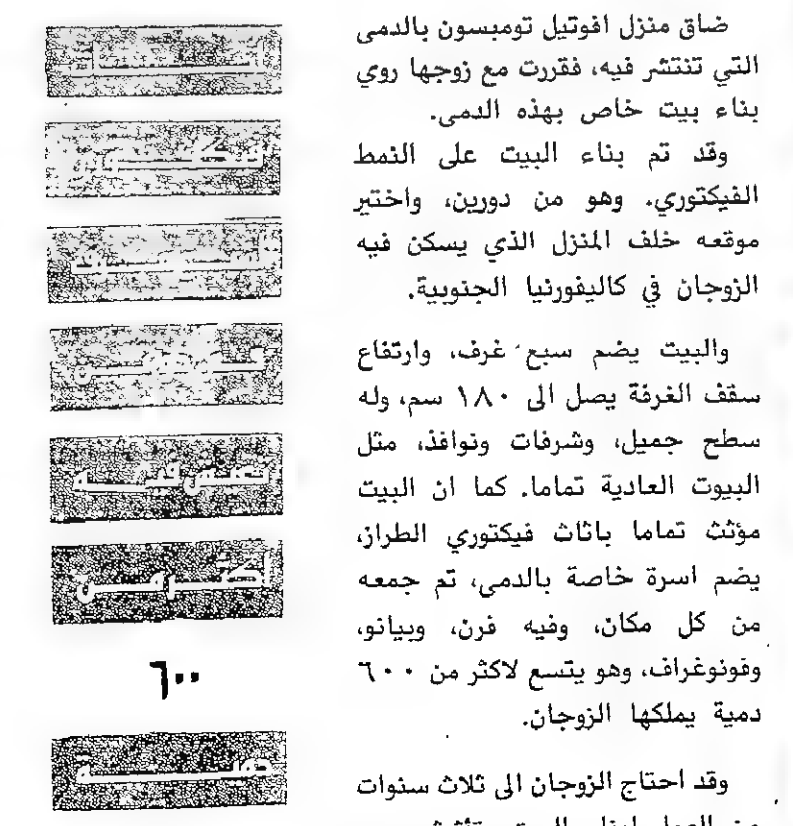 ضاق منزل افوتيل تومبسون بالدمى
التي تنتشر فيه، فقررت مع زوجها روي
بناء بيت خاص بهذه الدمى.
وقد تم بناء البيت على النمط
الفيكتوري. وهو من دورين، واختير
موقعه خلف المنزل الذي يسكن فيه
الزوجان في كاليفورنيا الجنوبية.
والبيت يضم سبع غرف، وارتفاع
سقف الغرفة يصل الى ١٨٠ سم، وله
سطح جميل، وشرفات ونوافذ، مثل
البيوت العادية تماما. كما ان البيت
مؤثث تماما باثاث فيكتوري الطراز،
يضم اسرة خاصة بالدمى، تم جمعه
من كل مكان، وفيه فرن، وبيانو،
وفونوغراف، وهو يتسع لاكثر من ٦٠٠
دمية يملكها الزوجان.
وقد احتاج الزوجان الى ثلاث سنوات
أكثر من
٦٠٠
دمية